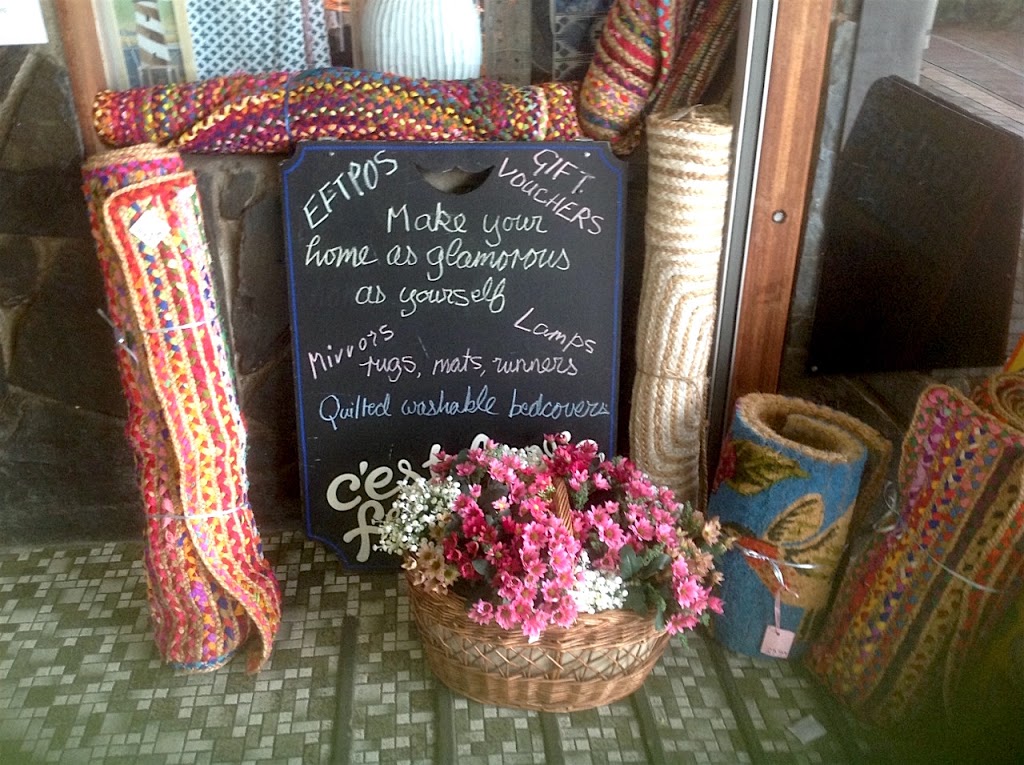 EFTPOS
GIFT
VOUCHERS
Make your
home as glamorous
as yourself
Mirrors
Lamps
rugs, mats, runners
Quilted washable bedcovers
c'est